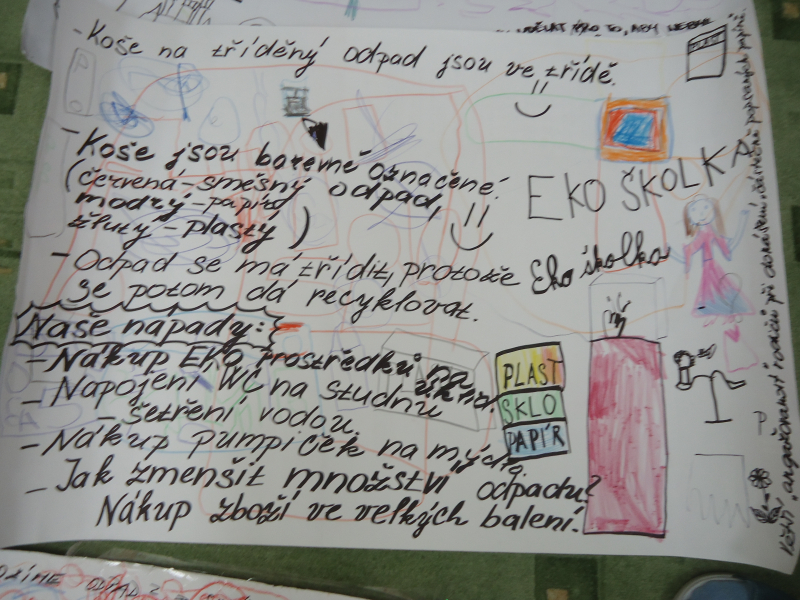 - Koše na tříděný odpad jsou ve třídě.
- Koše jsou barevně označené:
(červená - směsný odpad,
modrý - papír
žlutý - plasty)
- Odpad se má třídit, protože
se potom dá recyklovat.
Naše nápady:
- Nákup EKO prostředků na úklid.
- Napojení WC na studnu
- šetření vodou.
- Nákup pumpiček na mýdlo.
- Jak zmenšit množství odpadu?
Nákup zboží ve velkých balení.
EKO ŠKOLKA
Eko školka
PLAST
SKLO
PAPÍR
Větší angažovanost rodičů při donášení částečně popsaných papírů.
PRO TO, ABY